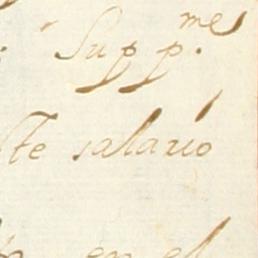 Supp.^mes
te salario
en el